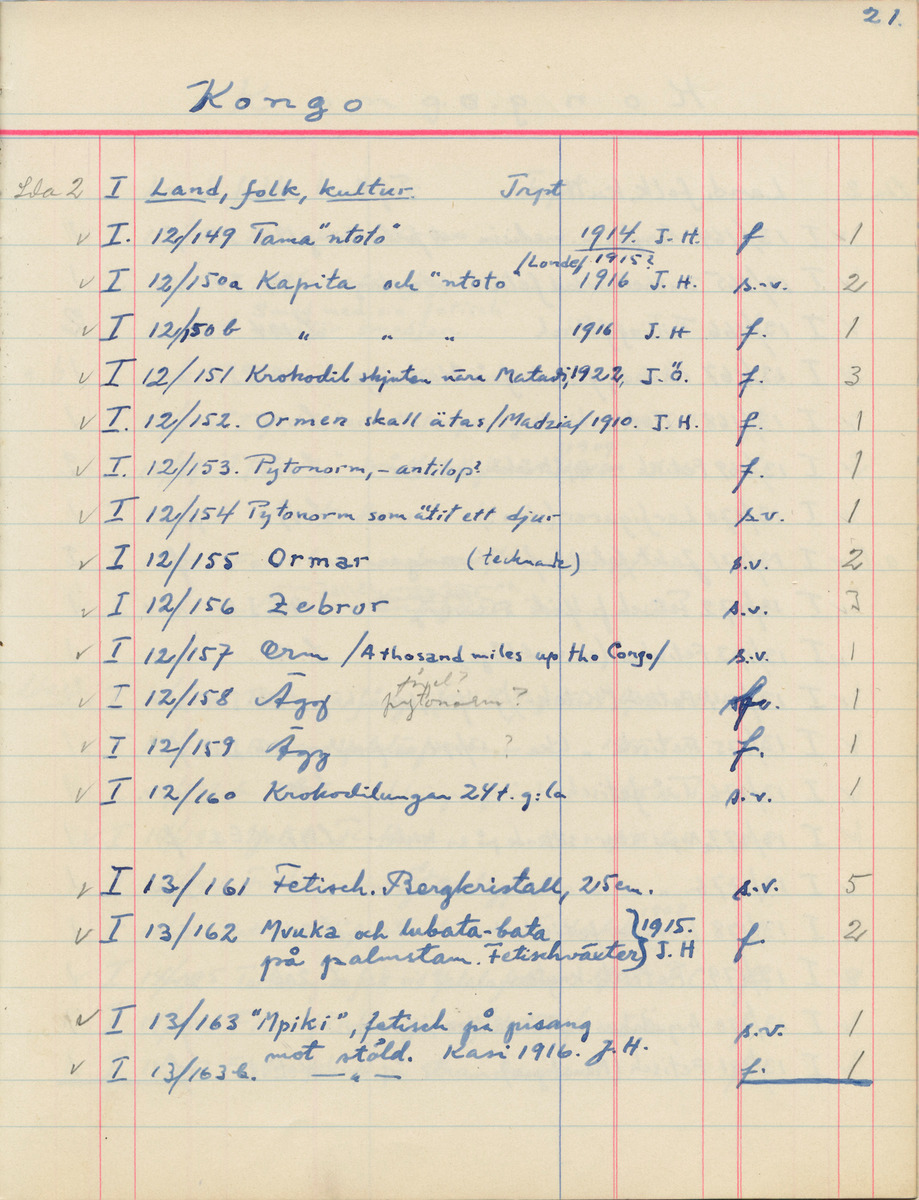 21.
Kongo
Lda 2 I Land, folk, kultur. Trpt
v I. 12/149 Tama "ntoto" 1914. J. H. f 1
/Londe/ 1915?
v I 12/150a Kapita och "ntoto" 1916 J. H. s.-v. 2
v I 12/150b " " " 1916 J. H f. 1
v I 12/151 Krokodil skjuten nära Matadi, 1922, J. Ö. f. 3
v I. 12/152. Ormen skall ätas /Madzia/ 1910. J. H. f. 1
v I. 12/153. Pytonorm, - antilop? f. 1
v I 12/154 Pytonorm som ätit ett djur s.v. 1
v I 12/155 Ormar (tecknade) s.v. 2
v I 12/156 Zebror s.v. 3
v I 12/157 Orm /A thosand miles up tho Congo/ s.v. 1
v I 12/158 Ägg pytonorm? 1
v I 12/159 Ägg ? f. 1
v I 12/160 Krokodilungar 24 t. g:la s.v. 1
v I 13/161 Fetisch. Bergkristall, 25 cm. s.v. 5
v I 13/162 Mvuka och lubata-bata } 1915. f. 2
på palmstam. Fetischväxter } J. H
v I 13/163 "Mpiki", fetisch på pisang s.v. 1
mot stöld. Kasi 1916. J. H.
v I 13/163 b. — " — f. 1